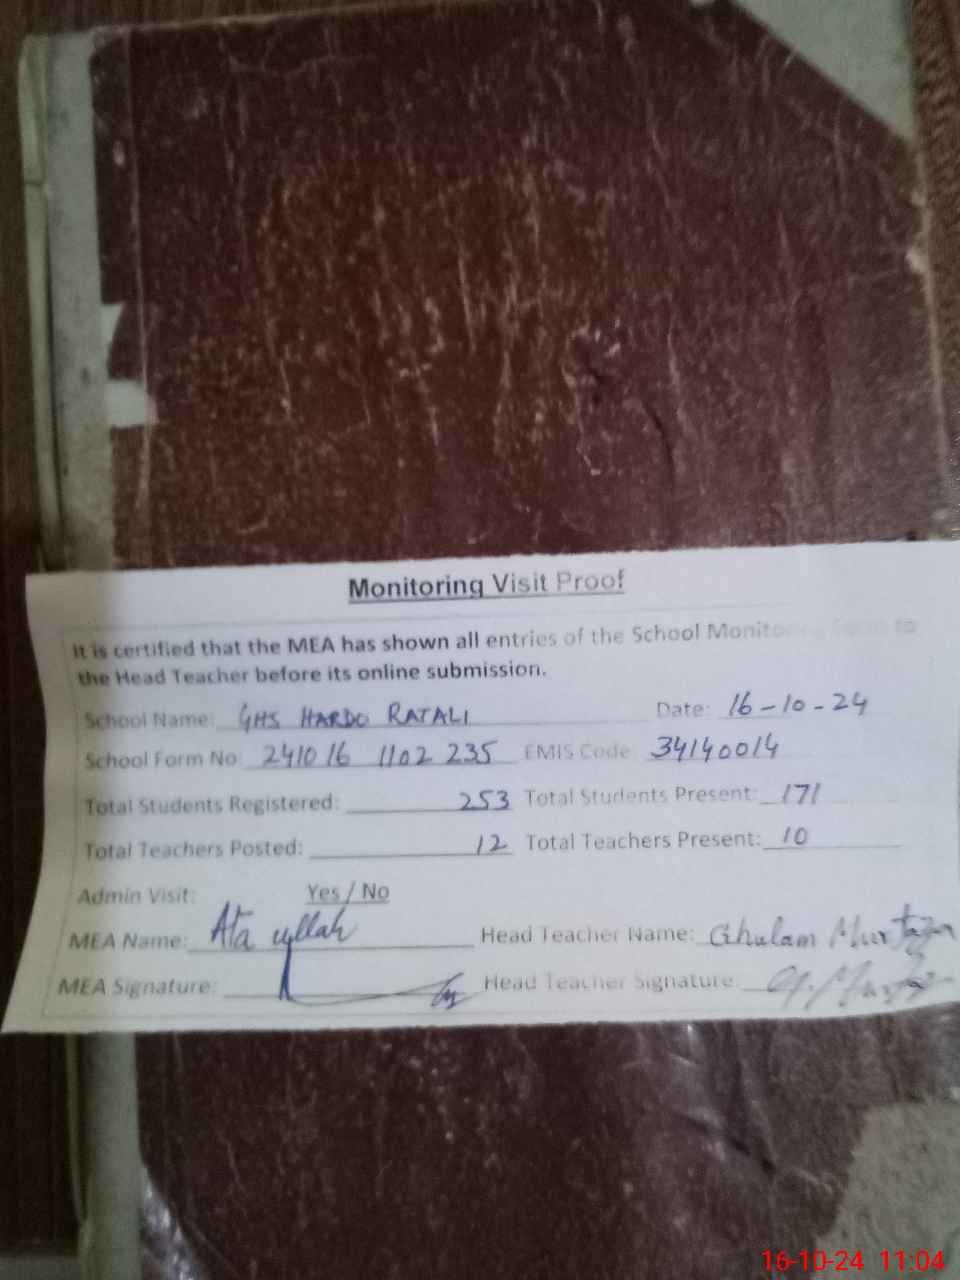 Monitoring Visit Proof
It is certified that the MEA has shown all entries of the School Monitoring Form to
the Head Teacher before its online submission.
School Name: GHS HARDO RATALI Date: 16-10-24
School Form No 241016 1102 235 EMIS Code 34140014
Total Students Registered: 253 Total Students Present: 171
Total Teachers Posted: 12 Total Teachers Present: 10
Admin Visit: Yes / No
MEA Name: Ata ullah Head Teacher Name: Ghulam Murtaza
MEA Signature: Head Teacher Signature:
16-10-24 11:04